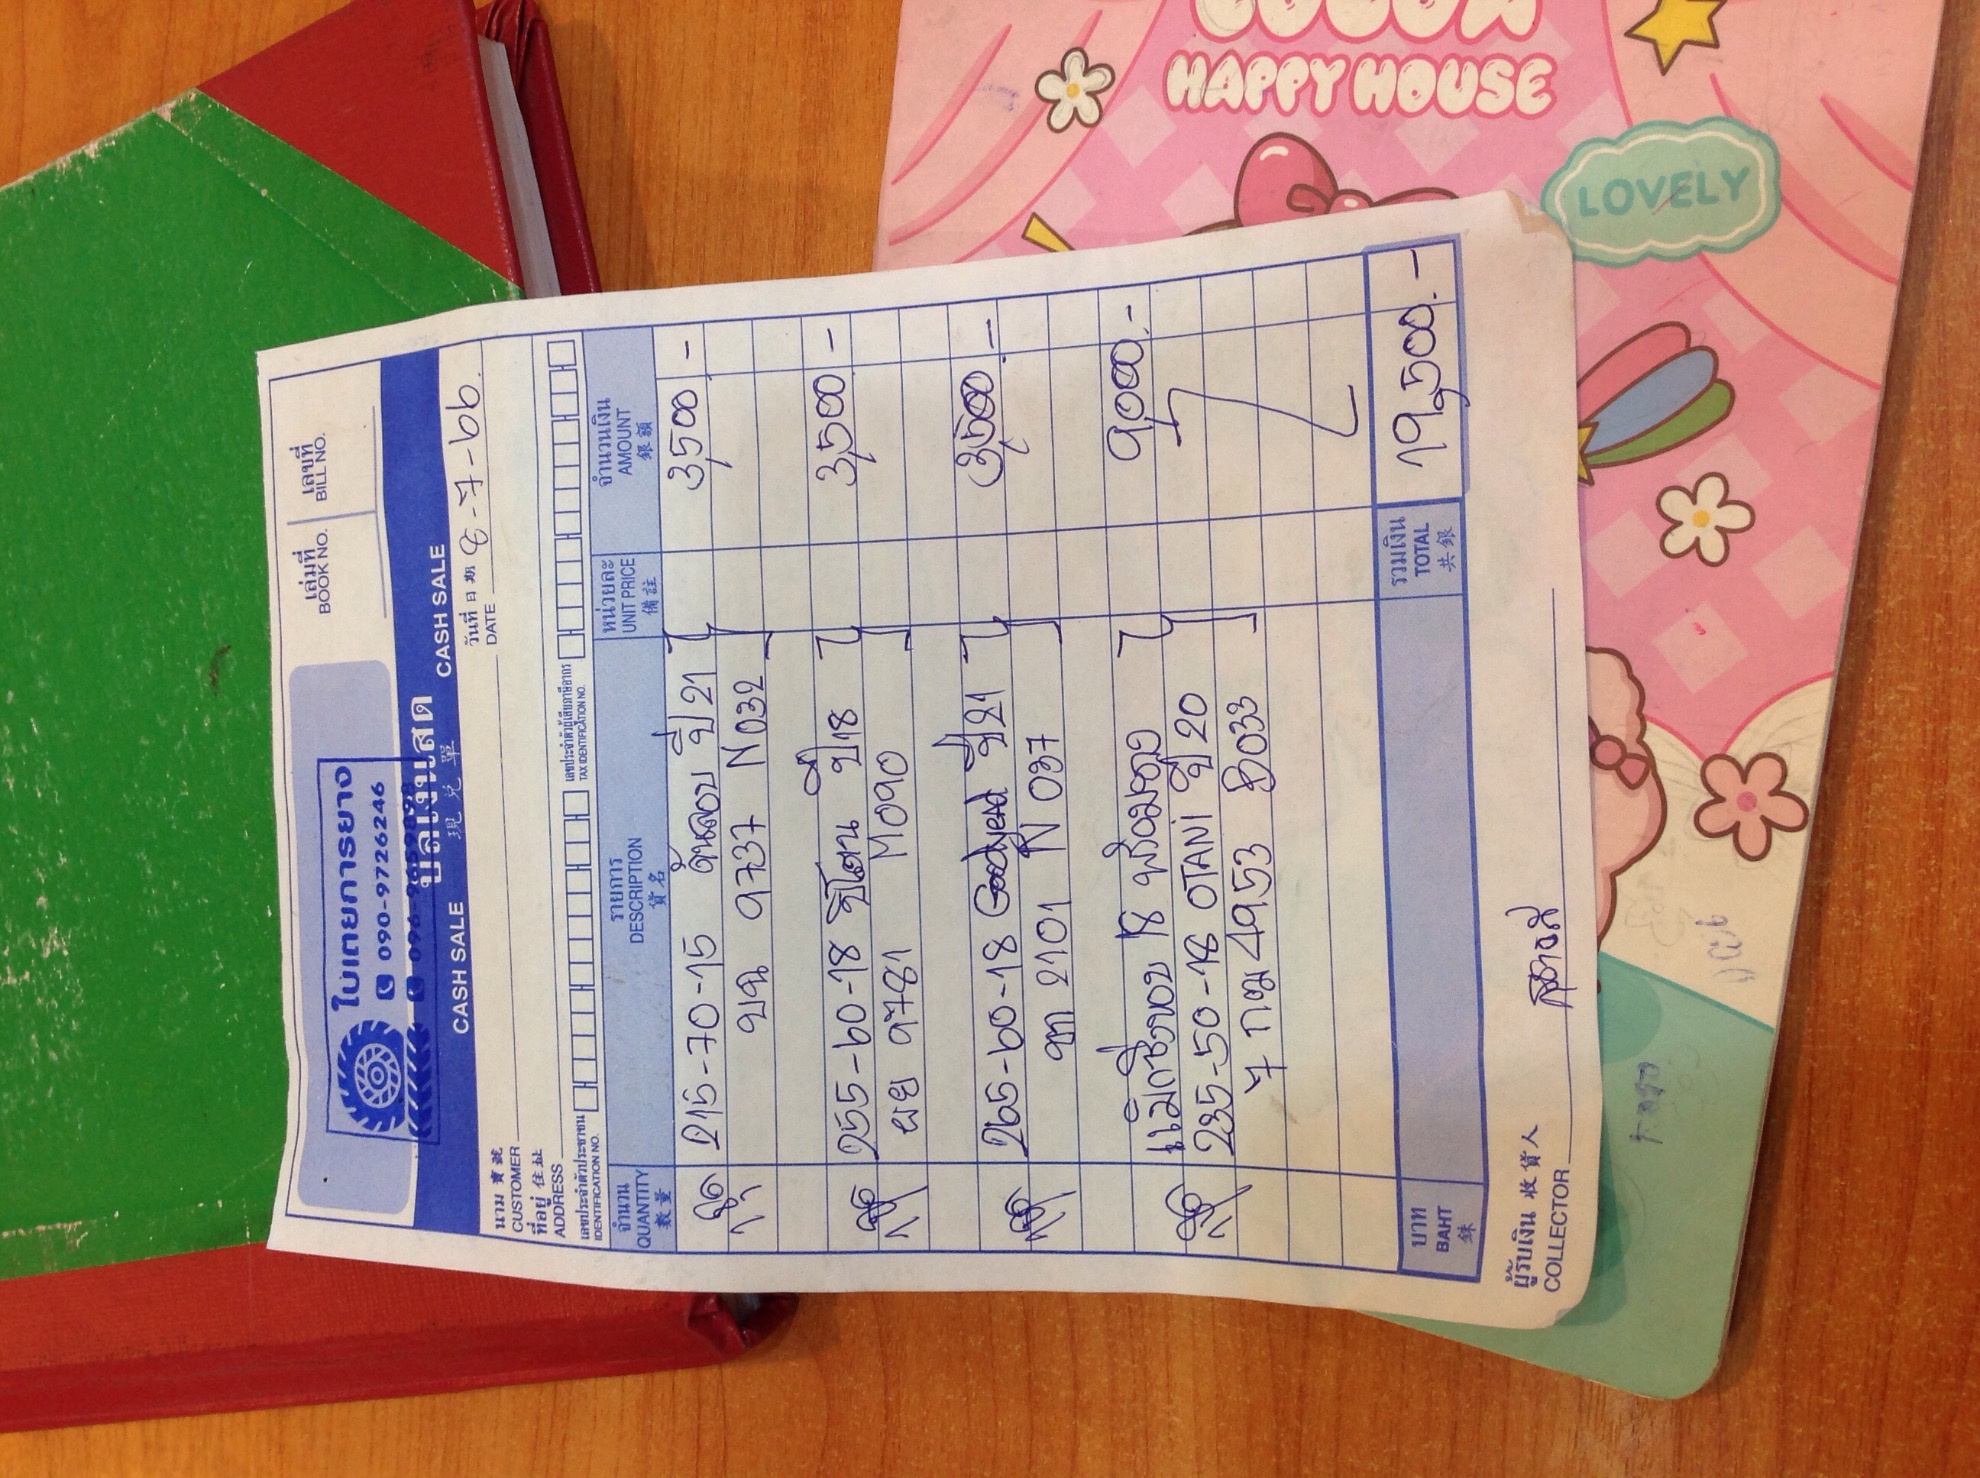 ใบเตยการยาง
090-9726246
เล่มที่ เลขที่
BOOK NO. BILL NO.
CASH SALE บิลเงินสด CASH SALE
現兌單
วันที่ 日期 8-7-66.
DATE
นาม 寶號
CUSTOMER
ที่อยู่ 住址
ADDRESS
เลขประจำตัวประชาชน เลขประจำตัวผู้เสียภาษีอากร
IDENTIFICATION NO. TAX IDENTIFICATION NO.
จำนวน รายการ หน่วยละ จำนวนเงิน
QUANTITY DESCRIPTION UNIT PRICE AMOUNT
數量 貨名 備註 銀額
1 ชุด 215-70-15 ดันลอป ปี 21 3,500 -
9737 N032
1 ชุด 255-60-18 ปี 18 3,500 -
ผย 9781 M090
1 ชุด 265-60-18 Goodyear ปี 21 3,500 -
2101 N037
1 ชุด แม็กซ์ขอบ 18 พร้อมยาง 9,000.-
235-50-18 OTANI ปี 20
7 กฆ 4953 B033
บาท รวมเงิน 19,500.-
BAHT TOTAL
銖 共銀
ผู้รับเงิน 收貨人
COLLECTOR
HAPPY HOUSE
LOVELY